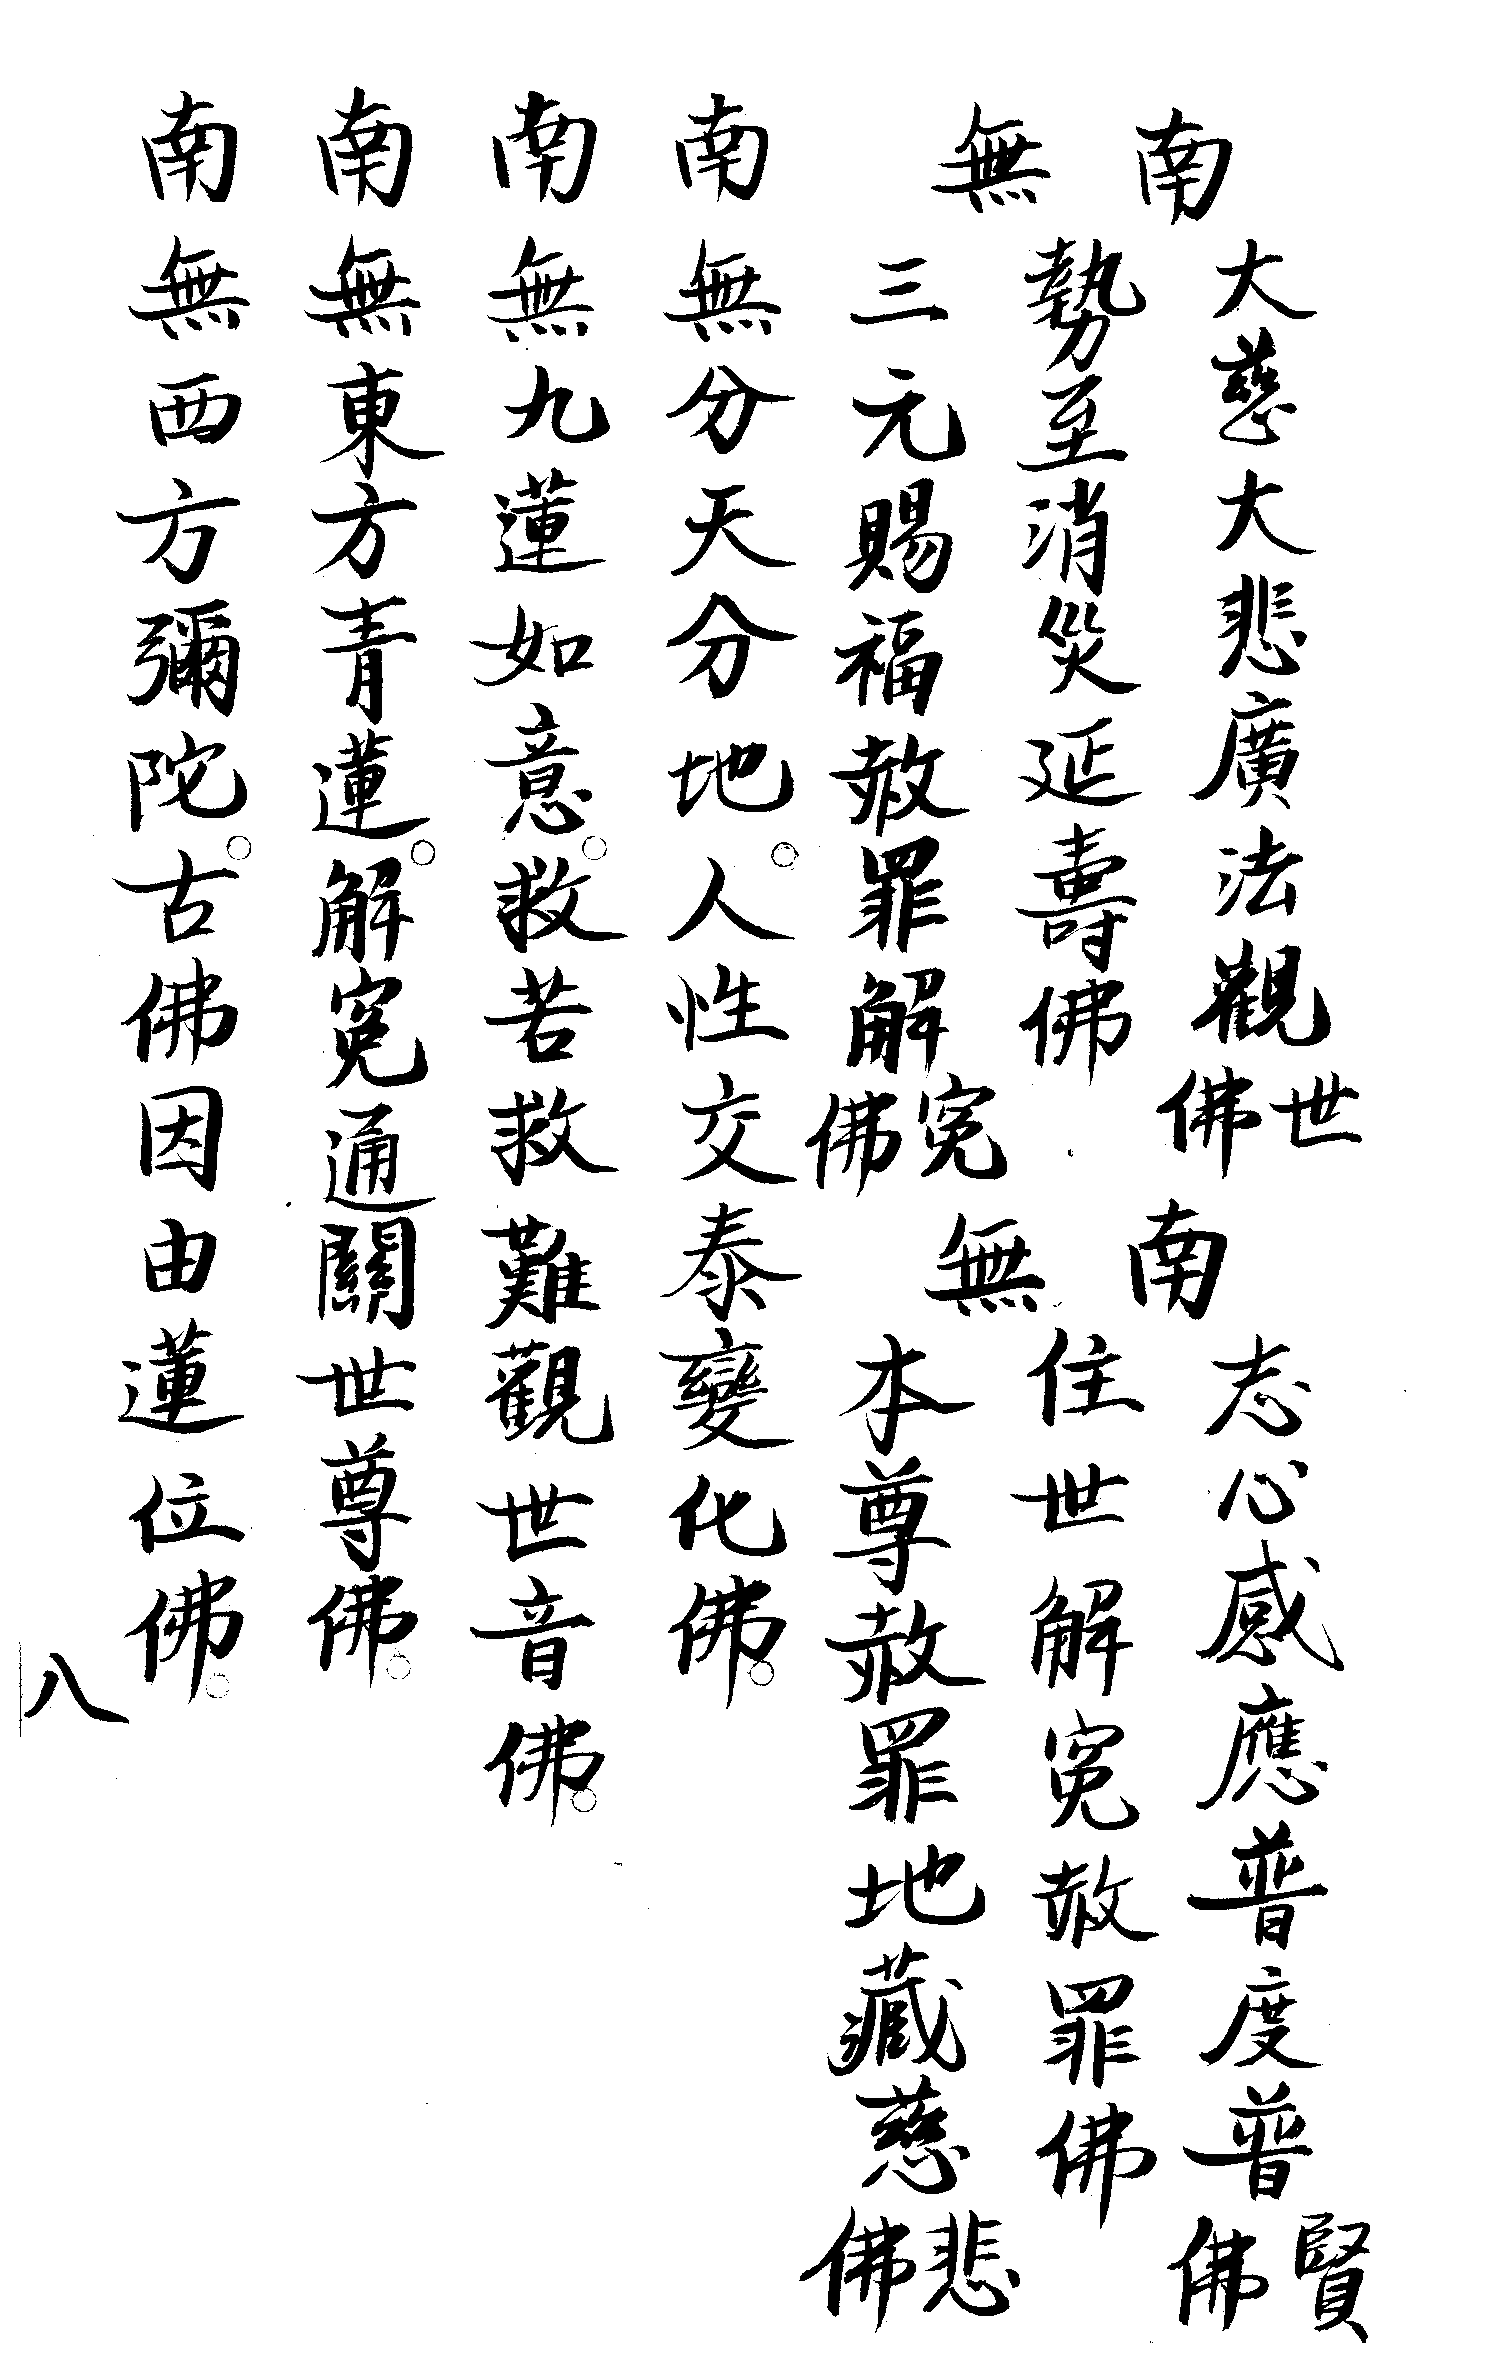 南無
大慈大悲廣法觀世佛
勢至消災延壽佛
三元賜福赦罪解寃佛
南無
志心感應普度普賢佛
住世解寃赦罪佛
本尊赦罪地藏慈悲佛
南無分天分地。人性交泰變化佛。
南無九蓮如意。救苦救難觀世音佛。
南無東方青蓮。解寃通關世尊佛。
南無西方彌陀。古佛因由蓮位佛。
八